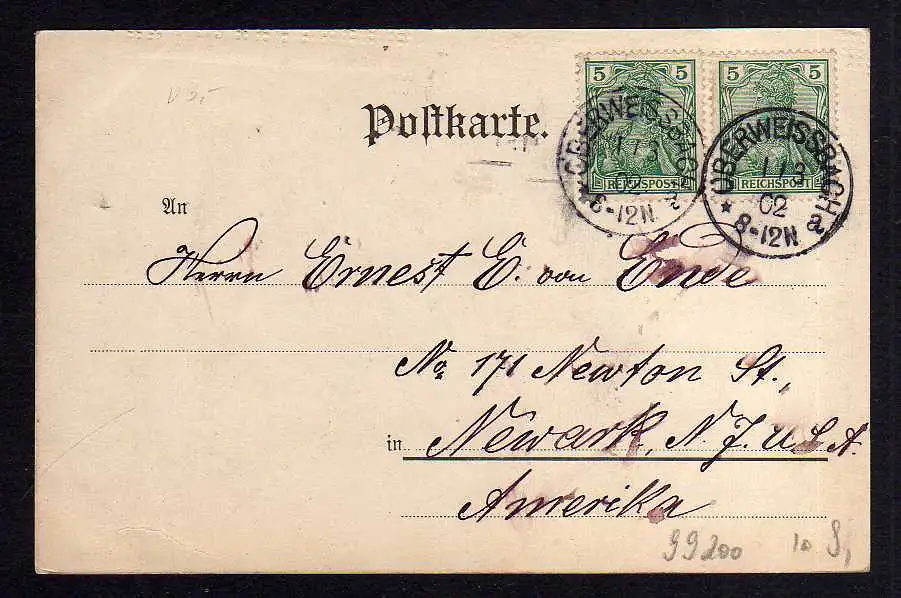 5 5 5 5
REICHSPOST REICHSPOST
OBERWEISSBACH
1 1 3
02
8-12N
OBERWEISSBACH
1 1 3
02
8-12N
Postkarte.
An
Herrn Ernest E. von Ende
No 171 Newton St.,
in Newark, N.J. U.S.A.
Amerika
99200